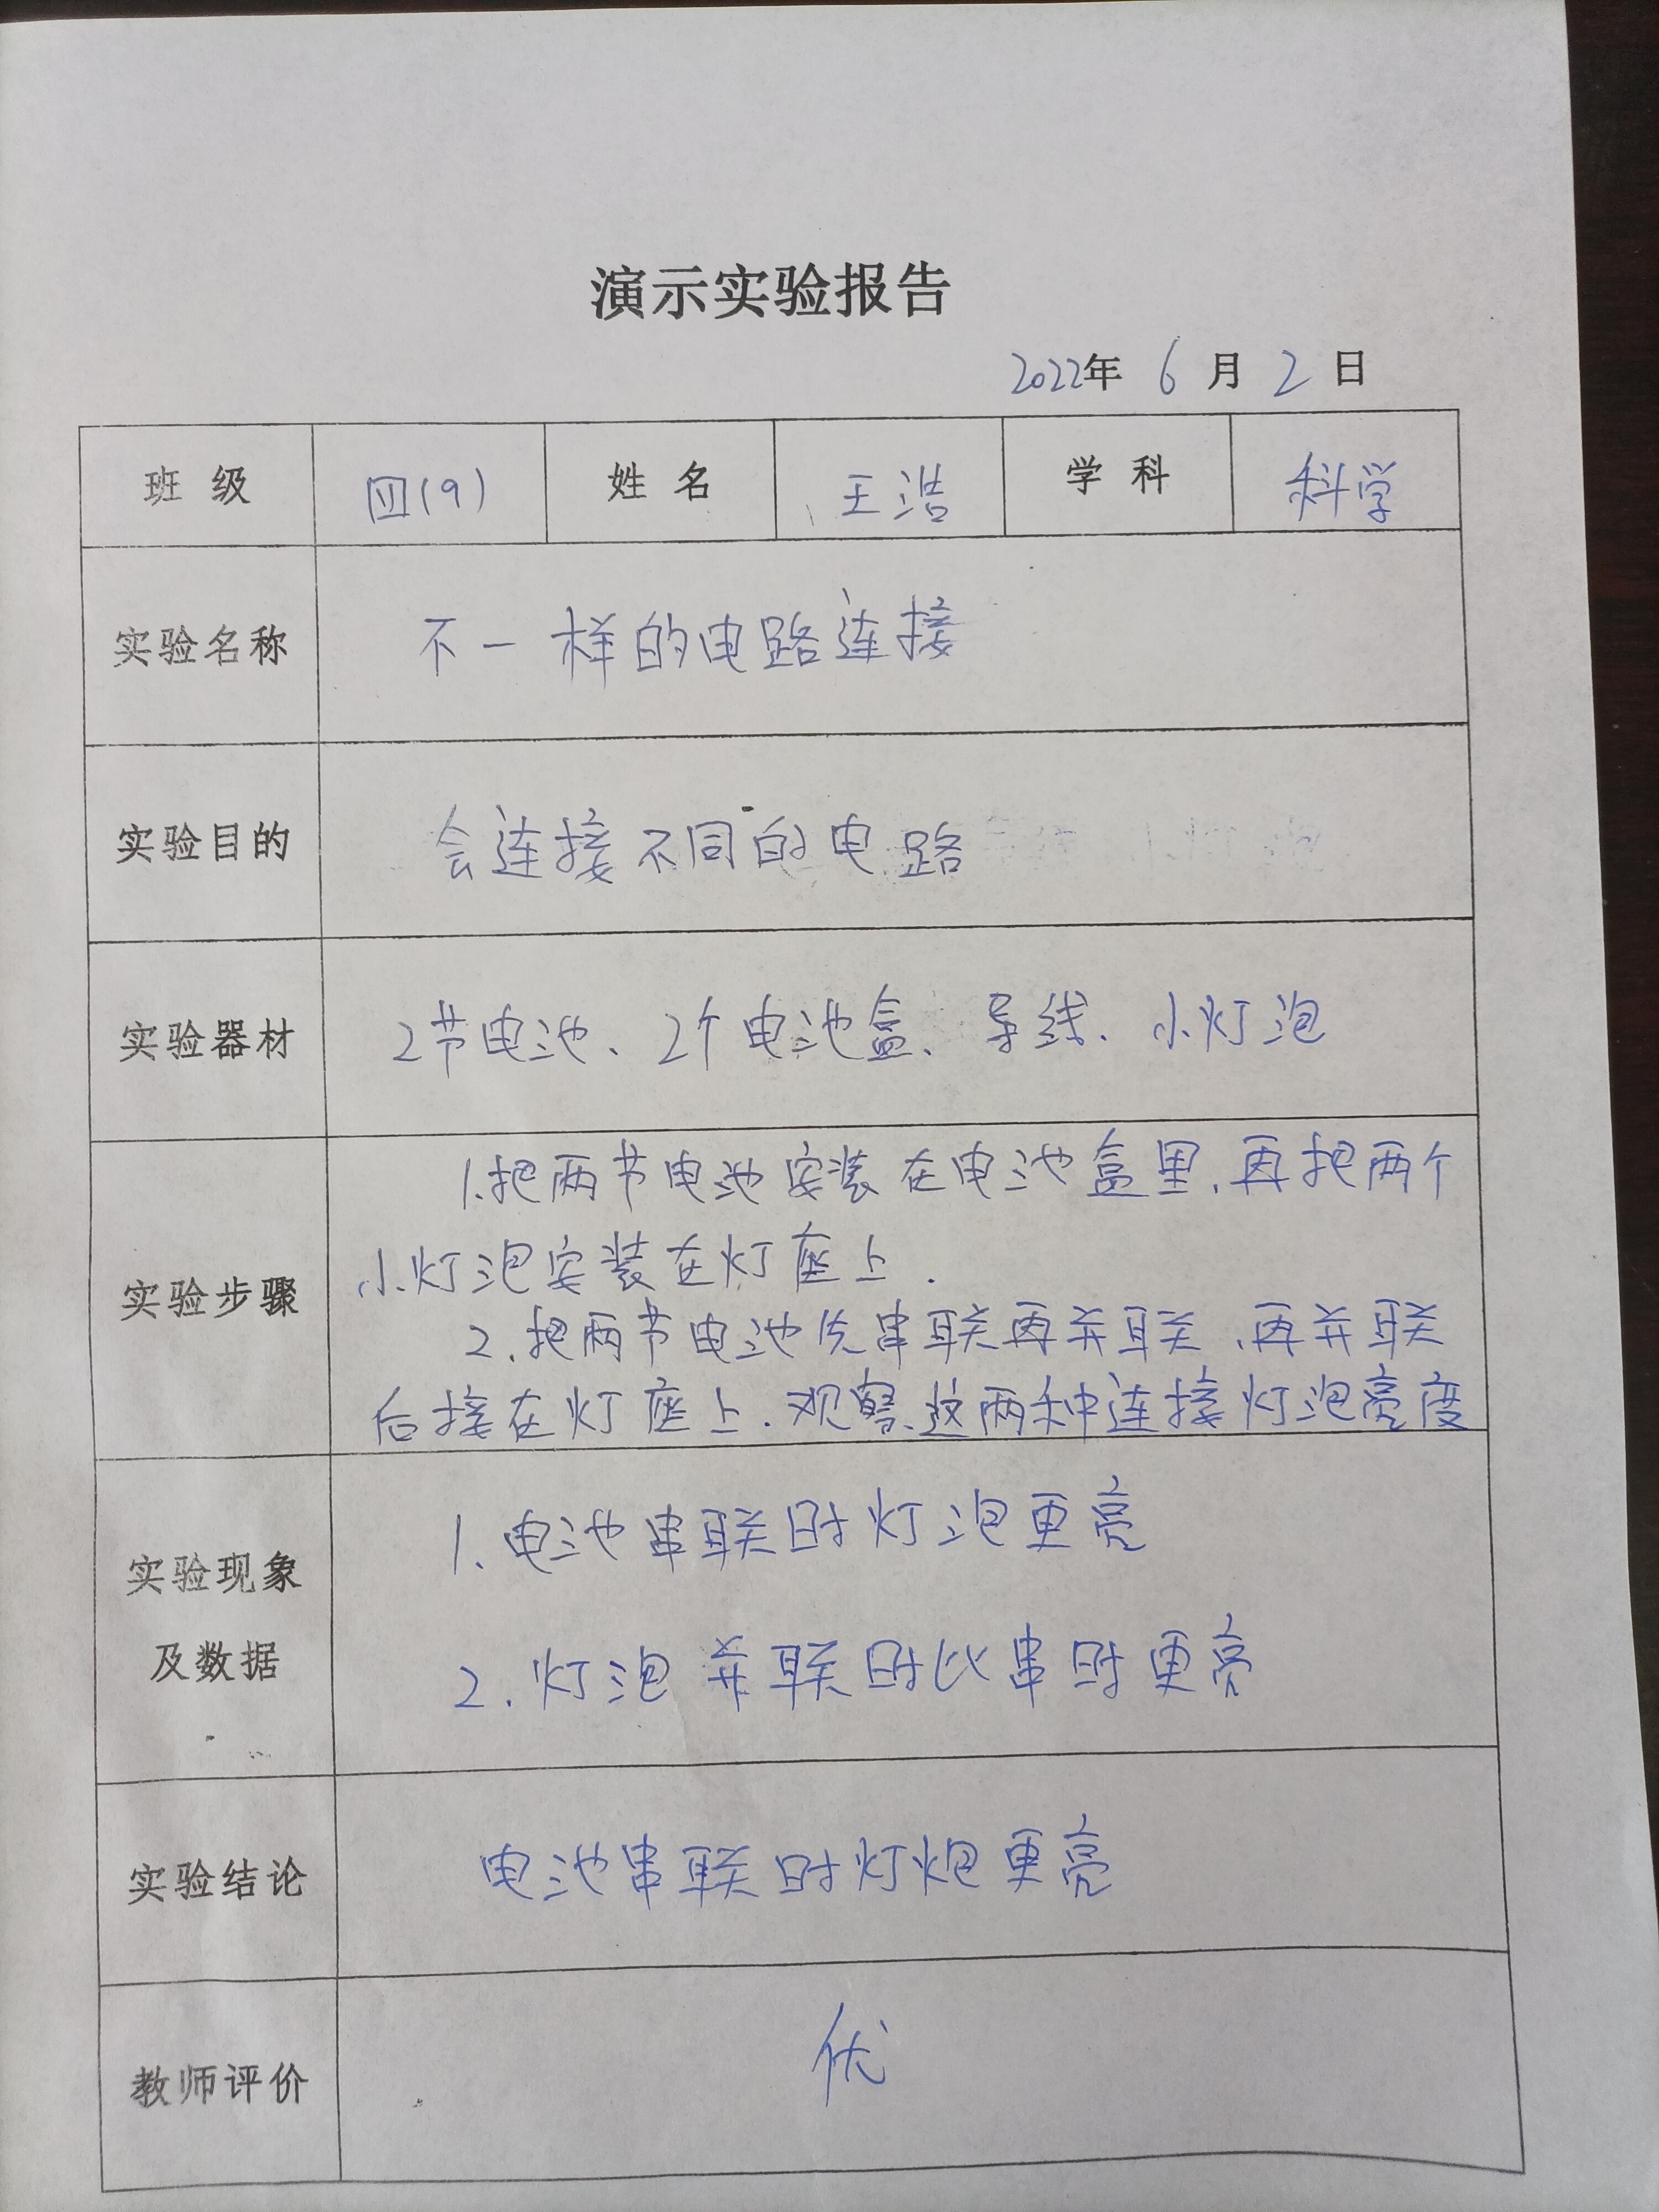 演示实验报告
2022年 6 月 2 日
班 级 四(9) 姓 名 王浩 学 科 科学
实验名称 不一样的电路连接
实验目的 会连接不同的电路
实验器材 2节电池、2个电池盒、导线、小灯泡
实验步骤
1.把两节电池安装在电池盒里,再把两个
小灯泡安装在灯座上.
2.把两节电池先串联再并联,再并联
后接在灯座上.观察这两种连接灯泡亮度
实验现象
及数据
1、电池串联时灯泡更亮
2.灯泡并联时比串时更亮
实验结论 电池串联时灯炮更亮
教师评价 优